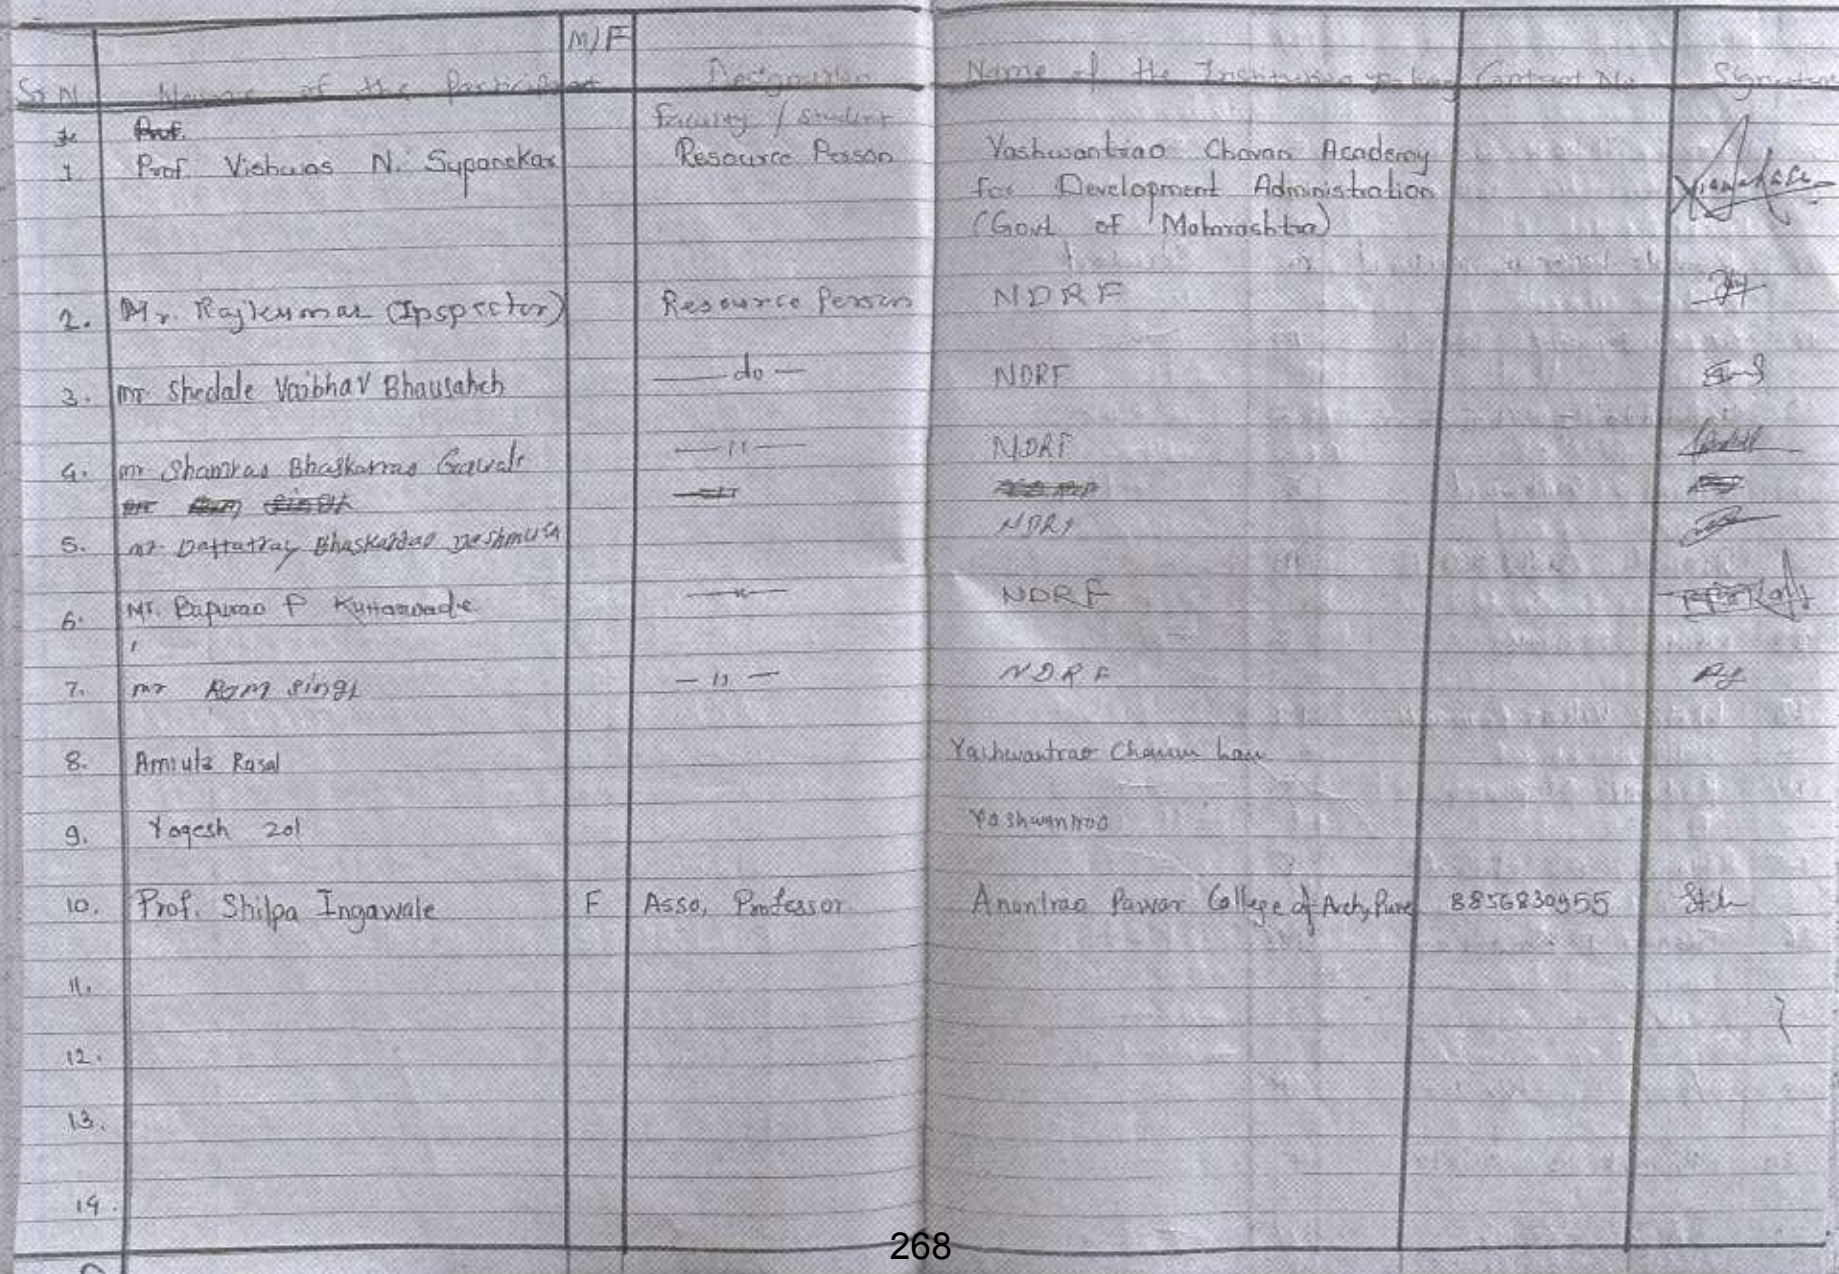 M/F
Sr N. Name of the Participant Designation Name of the Institution Contact No. Signature
Faculty / Student
Prof.
1 Prof Vishwas N. Supanekar Resource Person Yashwantrao Chavan Academy
for Development Administration
(Govt of Maharashtra)
2. Mr. Rajkumar (Inspector) Resource Person NDRF
3. mr Shedale Vaibhav Bhausaheb —do— NDRF
4. mr Shamrao Bhaskarrao Gawali —11— NDRF
mr Ram Singh
5. mr. Dattatray Bhaskarrao Deshmukh NDRF
6. Mr. Bapurao P —11— NDRF
7. mr Ram Singh —11— NDRF
8. Amruta Rasal Yashwantrao Chavan Law
9. Yogesh Zol Yashwantrao
10. Prof. Shilpa Ingawale F Asso, Professor Anantrao Pawar College of Arch, Pune 8856830955
11.
12.
13.
14.
268